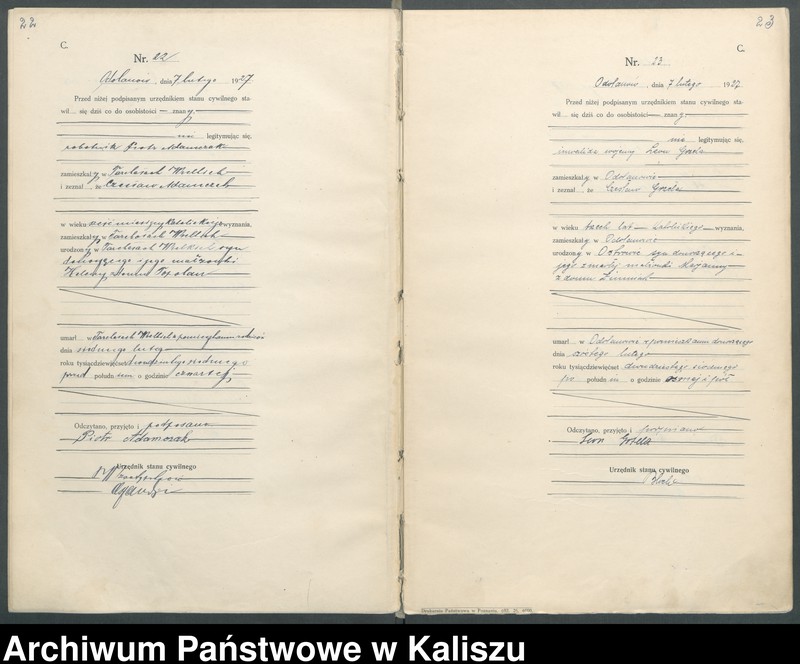 22
C.
Nr. 22
Odolanów, dnia 7 lutego 1927
Przed niżej podpisanym urzędnikiem stanu cywilnego sta-
wił się dziś co do osobistości — znany
legitymując się,
robotnik Piotr Adamczak
zamieszkały w Tarchałach Wielkich
i zeznał, że Czesław Adamczak
w wieku sześć miesięcy katolickiego wyznania,
zamieszkały w Tarchałach Wielkich
urodzony w Tarchałach Wielkich syn
donoszącego i jego małżonki
Heleny
umarł w Tarchałach Wielkich w pomieszkaniu rodziców
dnia siódmego lutego
roku tysiącdziewięćset dwudziestego siódmego
przed południem o godzinie czwartej
Odczytano, przyjęto i podpisano
Piotr Adamczak
Urzędnik stanu cywilnego
23
C.
Nr. 23
Odolanów, dnia 7 lutego 1927
Przed niżej podpisanym urzędnikiem stanu cywilnego sta-
wił się dziś co do osobistości — znany
legitymując się,
inwalida wojenny Leon
zamieszkały w Odolanowie
i zeznał, że Czesław
w wieku trzech lat — katolickiego — wyznania,
zamieszkały w Odolanowie
urodzony w Ostrowie syn donoszącego i
jego zmarłej małżonki Marjanny
z domu
umarł w Odolanowie w pomieszkaniu donoszącego
dnia szóstego lutego
roku tysiącdziewięćset dwudziestego siódmego
po południu o godzinie ósmej i pół
Odczytano, przyjęto i podpisano
Leon
Urzędnik stanu cywilnego
Drukarnia Państwowa w Poznaniu.
Archiwum Państwowe w Kaliszu